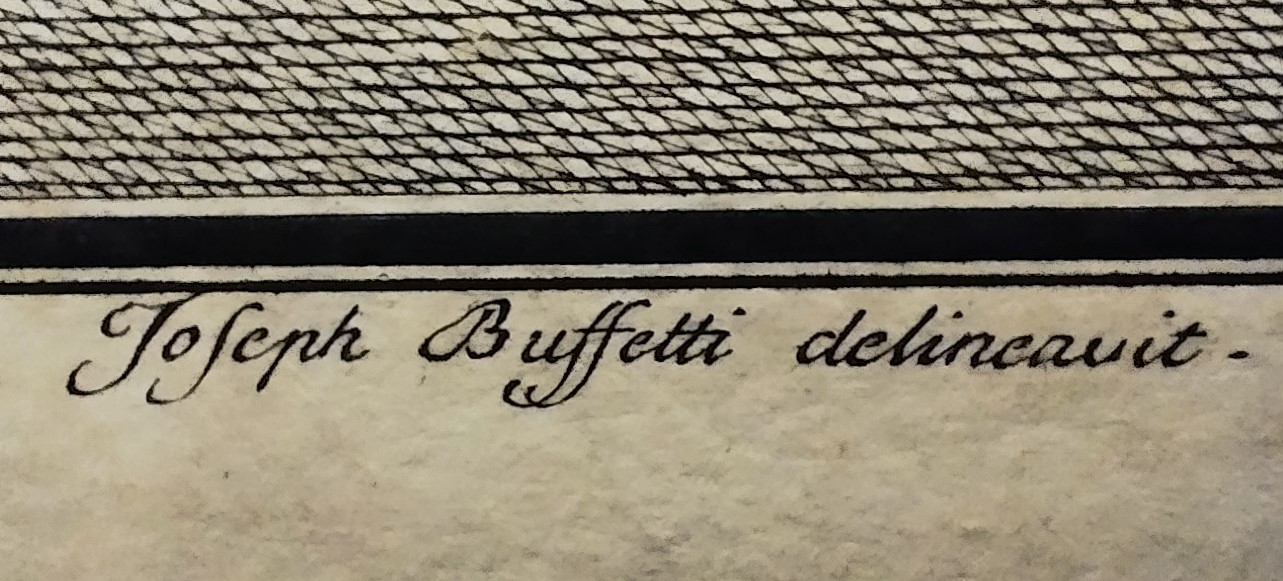 Joſeph Buffetti delineauit.